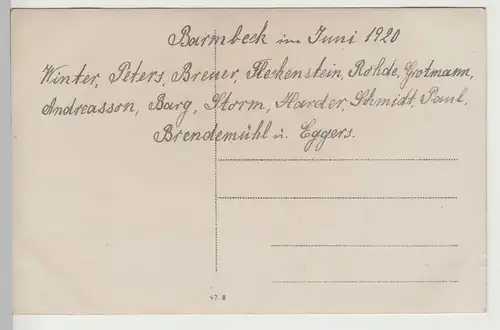 Barmbeck im Juni 1920
Winter, Peters, Breuer, Fleckenstein, Rohde, Grotmann,
Andreasson, Barg, Storm, Harder, Schmidt, Paul,
Brendemühl u. Eggers.